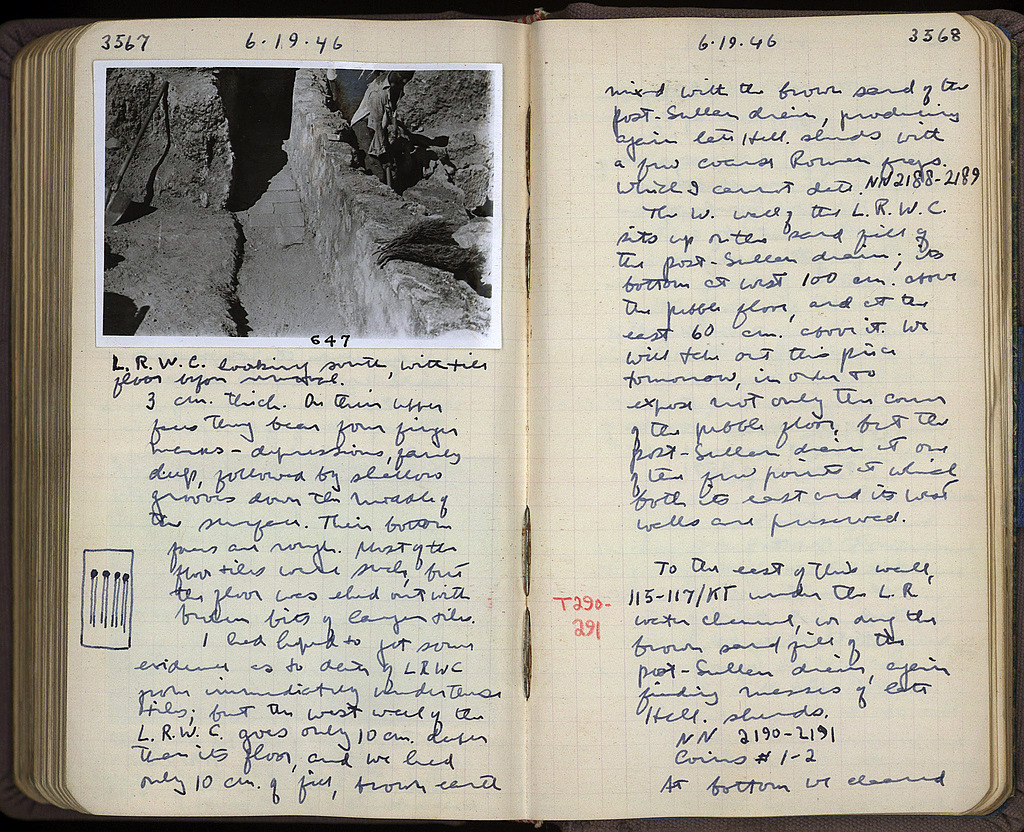 3567
6·19·46
647
L.R.W.C. looking south, with tile
floor upon removal.
3 cm. thick. On their upper
faces they bear four finger
marks - depressions, fairly
deep, followed by shallow
grooves down the middle of
the surface. Their bottom
faces are rough. Most of the
floor tiles were such, but
the floor was eked out with
broken bits of larger tiles.
I had hoped to get some
evidence as to date of LRWC
from immediately under these
tiles; but the west wall of the
L.R.W.C. goes only 10 cm. deeper
than its floor, and we had
only 10 cm. of fill, brown earth
6·19·46
3568
mixed with the brown sand of the
post-Sullan drain, producing
again late Hell. sherds with
a few coarse Roman frags.
which I cannot date. NN 2188-2189
The W. wall of the L.R.W.C.
sits up on the sand fill of
the post-Sullan drain; its
bottom at west 100 cm. above
the pebble floor, and at the
east 60 cm. above it. We
will take out this piece
tomorrow, in order to
expose not only the corner
of the pebble floor, but the
post-Sullan drain at one
of the few points at which
both its east and its west
walls are preserved.
To the east of this wall,
115-117/ΚΤ under the L.R.
water channel, we dug the
brown sand fill of the
post-Sullan drain, again
finding masses of late
Hell. sherds.
T290-
291
NN 2190-2191
Coins # 1-2
At bottom we cleared